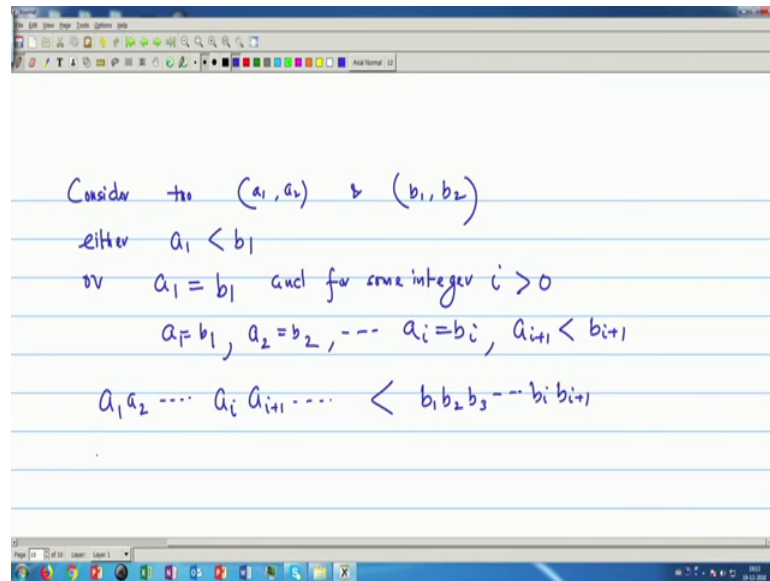 File Edit View Page Tools Options Help
Arial Normal 12
Consider two (a₁, a₂) & (b₁, b₂)
either a₁ < b₁
or a₁ = b₁ and for some integer i > 0
a₁ = b₁, a₂ = b₂, ---- aᵢ = bᵢ, aᵢ₊₁ < bᵢ₊₁
a₁ a₂ ---- aᵢ aᵢ₊₁ ---- < b₁ b₂ b₃ --- bᵢ bᵢ₊₁
Page 10 of 10 Layer: Layer 1